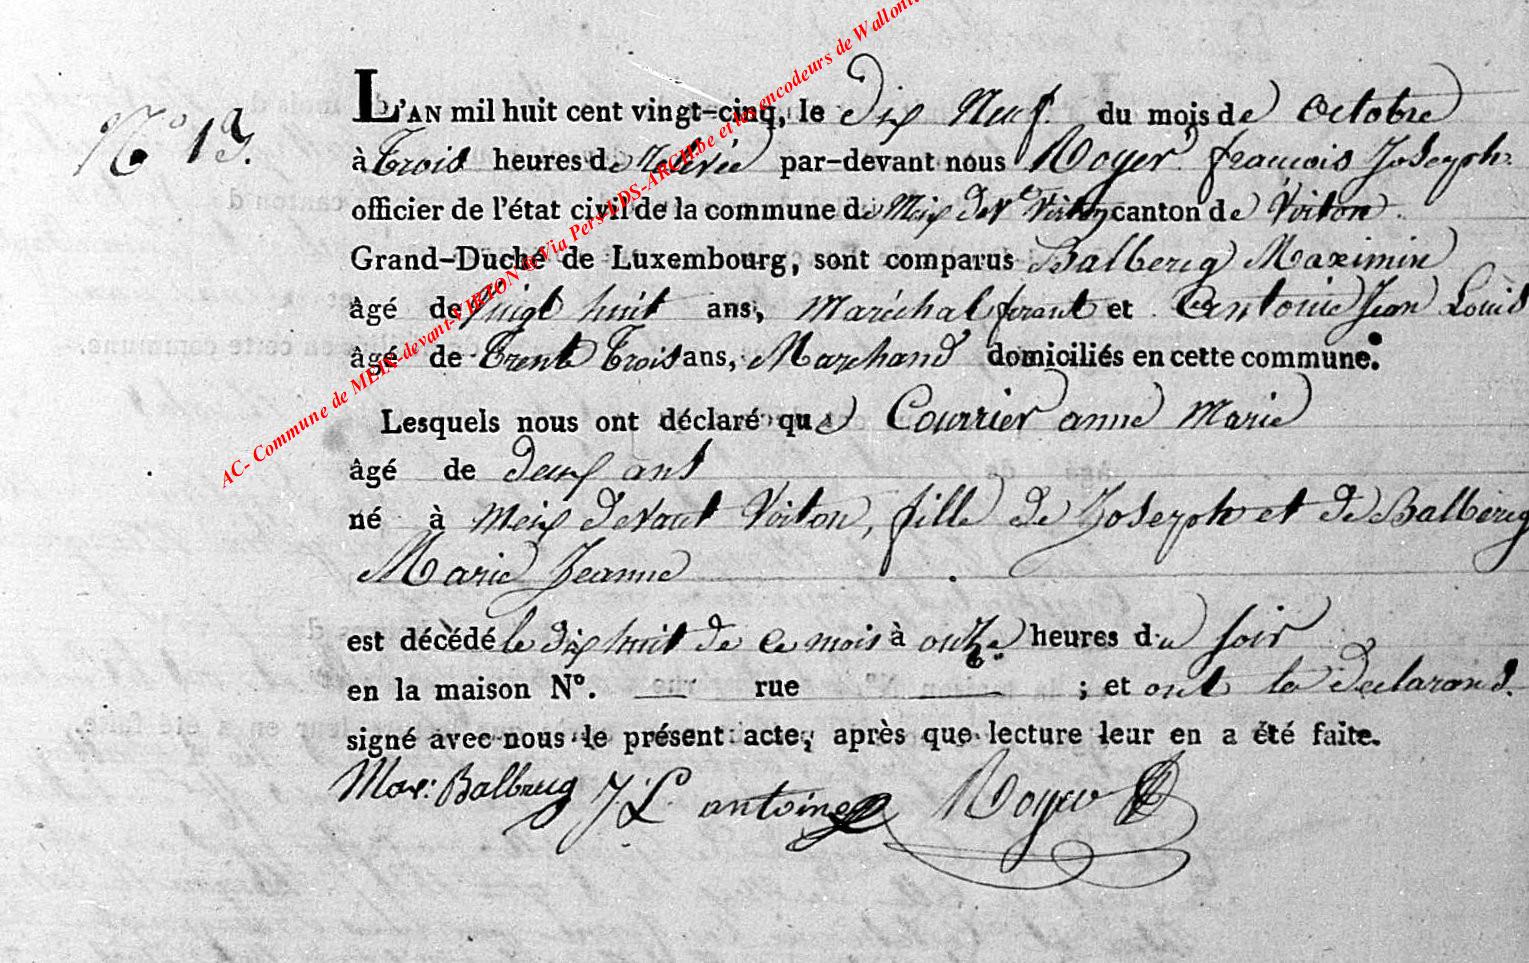 N° 13.
L'AN mil huit cent vingt-cinq, le dix Neuf du mois de octobre
à Trois heures de relevée par-devant nous Royer françois Joseph
officier de l'état civil de la commune de Meix devt Virton canton de Virton.
Grand-Duché de Luxembourg, sont comparus Balberig Maximin
âgé de vingt huit ans, Maréchal ferant et Antoine Jean Louis
âgé de Trente Trois ans, Marchand domiciliés en cette commune.
Lesquels nous ont déclaré que Courrier anne Marie
âgé de deux ans
né à Meix devant Virton, fille de Joseph et de Balberig
Marie Jeanne
est décédé le dix huit de ce mois à onze heures du soir
en la maison N°. — rue — ; et ont les declarans.
signé avec nous le présent acte, après que lecture leur en a été faite.
Max: Balbrug J. L. antoine Royer
AC- Commune de MEIX-devant-VIRTON @ Via Pers LDS-ARCH.be et les encodeurs de Wallonie